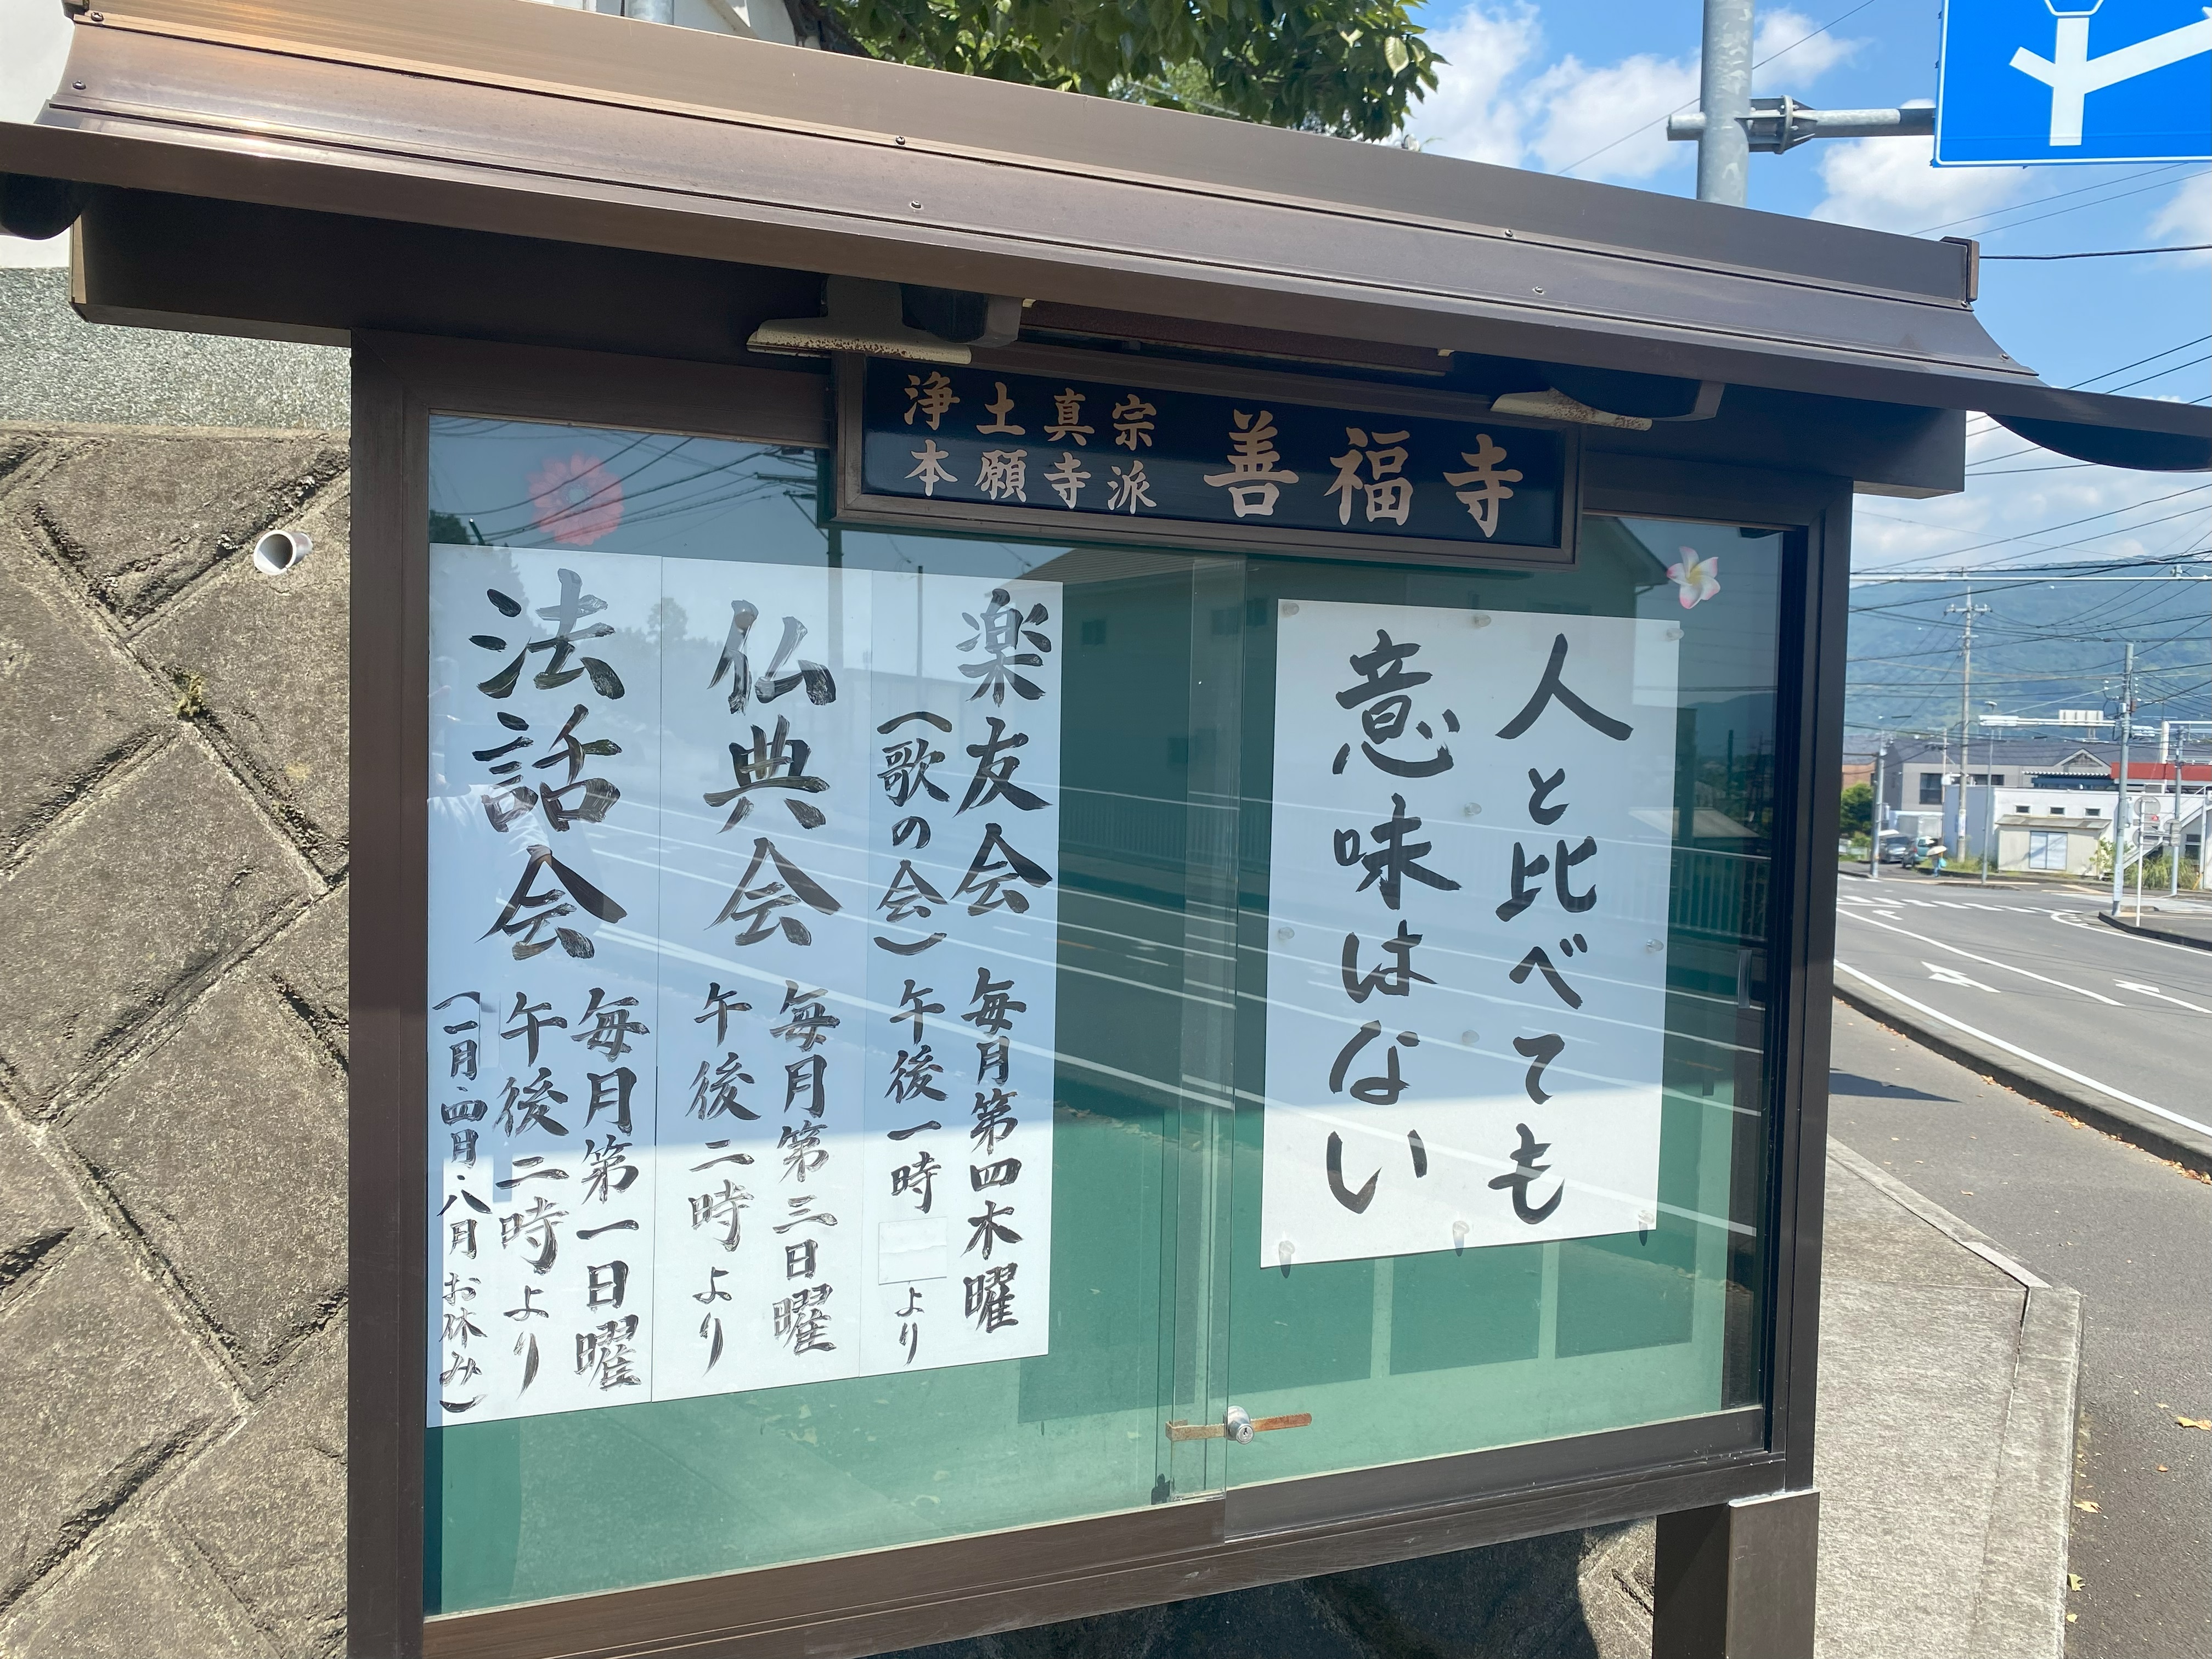 浄土真宗
本願寺派
善福寺
人と比べても
意味はない
楽友会 毎月第四木曜
(歌の会) 午後一時より
仏典会 毎月第三日曜
午後二時より
法話会 毎月第一日曜
午後二時より
(一月・四月・八月お休み)